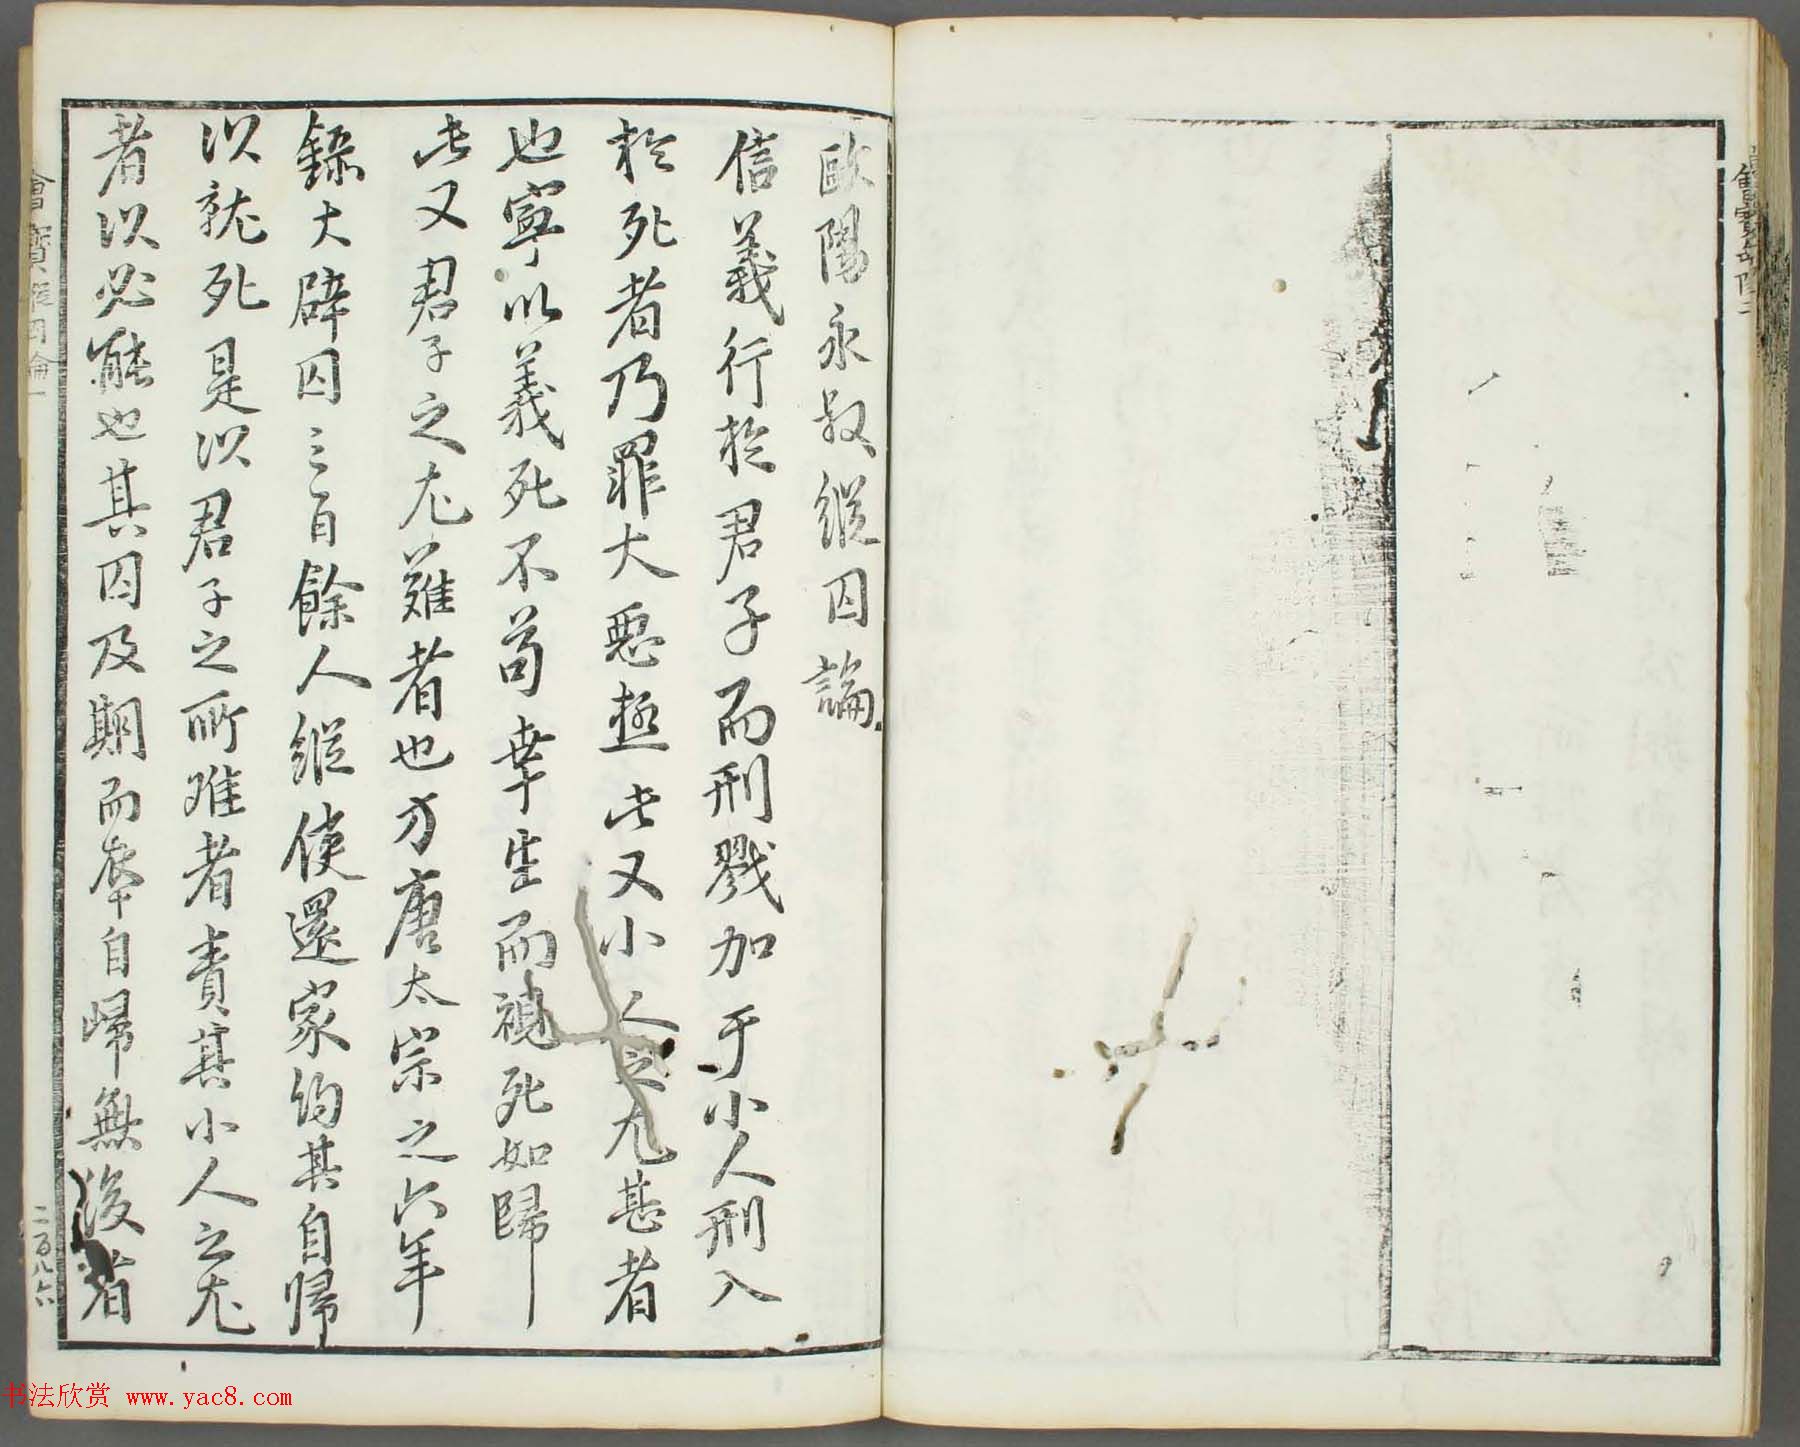 歐陽永叔縱囚論
信義行於君子而刑戮加于小人刑入
於死者乃罪大惡極此又小人之尤甚者
也寧以義死不苟幸生而視死如歸
此又君子之尤難者也方唐太宗之六年
錄大辟囚三百餘人縱使還家約其自歸
以就死是以君子之所难者責其小人之尤
者以必能也其囚及期而卒自歸無後者
二百八六
书法欣赏 www.yac8.com